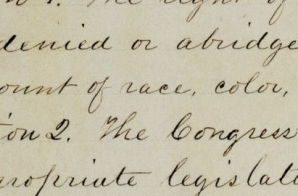 on 1. The right of
denied or abridge
ount of race, color,
ion 2. The Congress
ropriate legislat